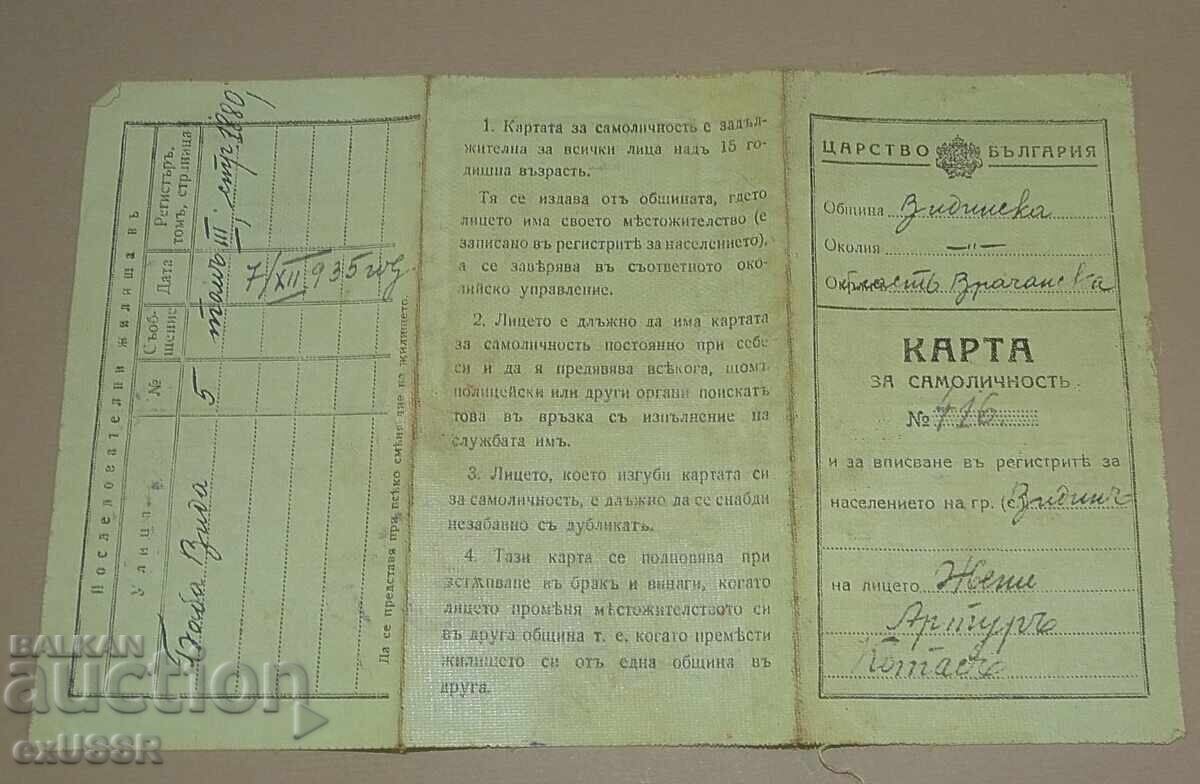 Последователни жилища въ
Улица № Съоб-щение Дата Регистъръ, томъ, страница
Баба Вида 5 томъ III, стр. 1880,
7/XII 935 год.
Да се представя при всѣко смѣняне на жилището.
1. Картата за самоличность е задъл-
жителна за всички лица надъ 15 го-
дишна възрасть.
Тя се издава отъ общината, гдето
лицето има своето мѣстожителство (е
записано въ регистритѣ за населението),
а се завѣрява въ съответното око-
лийско управление.
2. Лицето е длъжно да има картата
за самоличность постоянно при себе
си и да я предявява всѣкога, щомъ
полицейски или други органи поискатъ
това въ връзка съ изпълнение на
службата имъ.
3. Лицето, което изгуби картата си
за самоличность, е длъжно да се снабди
незабавно съ дубликатъ.
4. Тази карта се подновява при
встѫпване въ бракъ и винаги, когато
лицето промѣня мѣстожителството си
въ друга община т. е. когато премѣсти
жилището си отъ една община въ
друга.
ЦАРСТВО БЪЛГАРИЯ
Община Видинска
Околия —„—
область Врачанска
КАРТА
ЗА САМОЛИЧНОСТЬ
№ 416
и за вписване въ регистритѣ за
населението на гр. (с Видинъ
на лицето Жени
Артуръ
Котасъ
BALKAN
auction
exUSSR